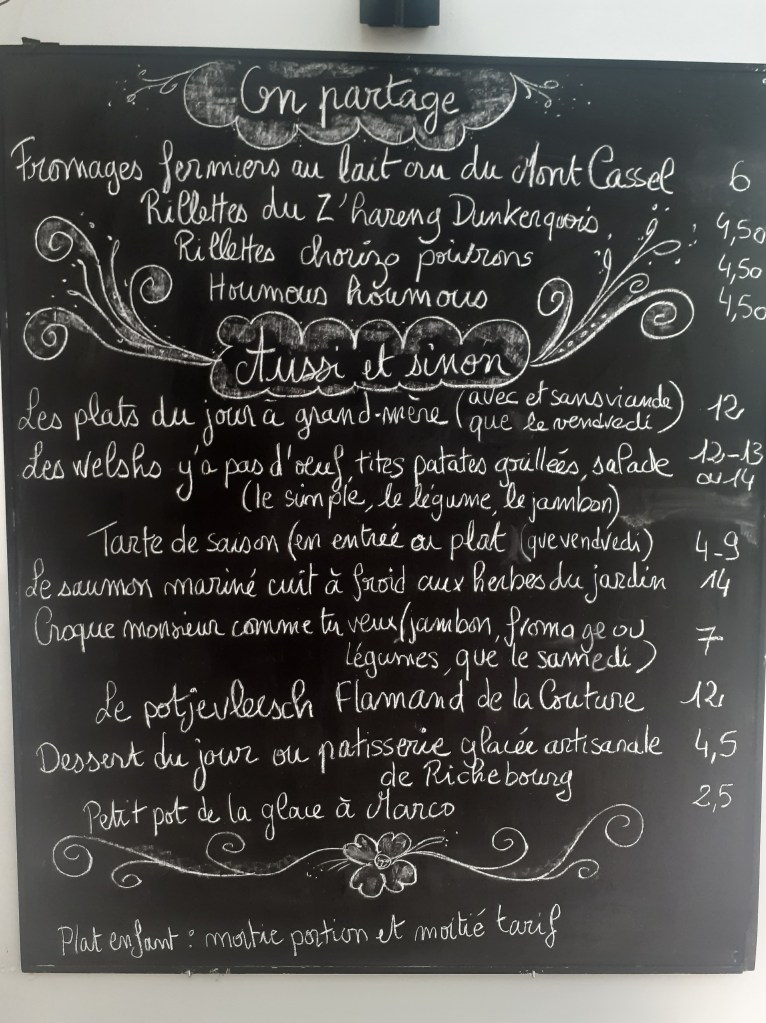 On partage
Fromages fermiers au lait cru du Mont Cassel 6
Rillettes du Z'hareng Dunkerquois. 4,50
Rillettes chorizo poivrons 4,50
Houmous houmous 4,50
Aussi et sinon
Les plats du jour à grand-mère (avec et sans viande que le vendredi) 12
Les welshs y'a pas d'oeuf, tites patates grillées, salade 12-13 ou 14
(le simple, le légume, le jambon)
Tarte de saison (en entrée ou plat (que vendredi) 4-9
Le saumon mariné cuit à froid aux herbes du jardin 14
Croque monsieur comme tu veux (jambon, fromage ou 7
légumes, que le samedi)
Le potjevleesch Flamand de la Couture 12
Dessert du jour ou patisserie glacée artisanale 4,5
de Richebourg
Petit pot de la glace à Marco 2,5
Plat enfant : moitié portion et moitié tarif